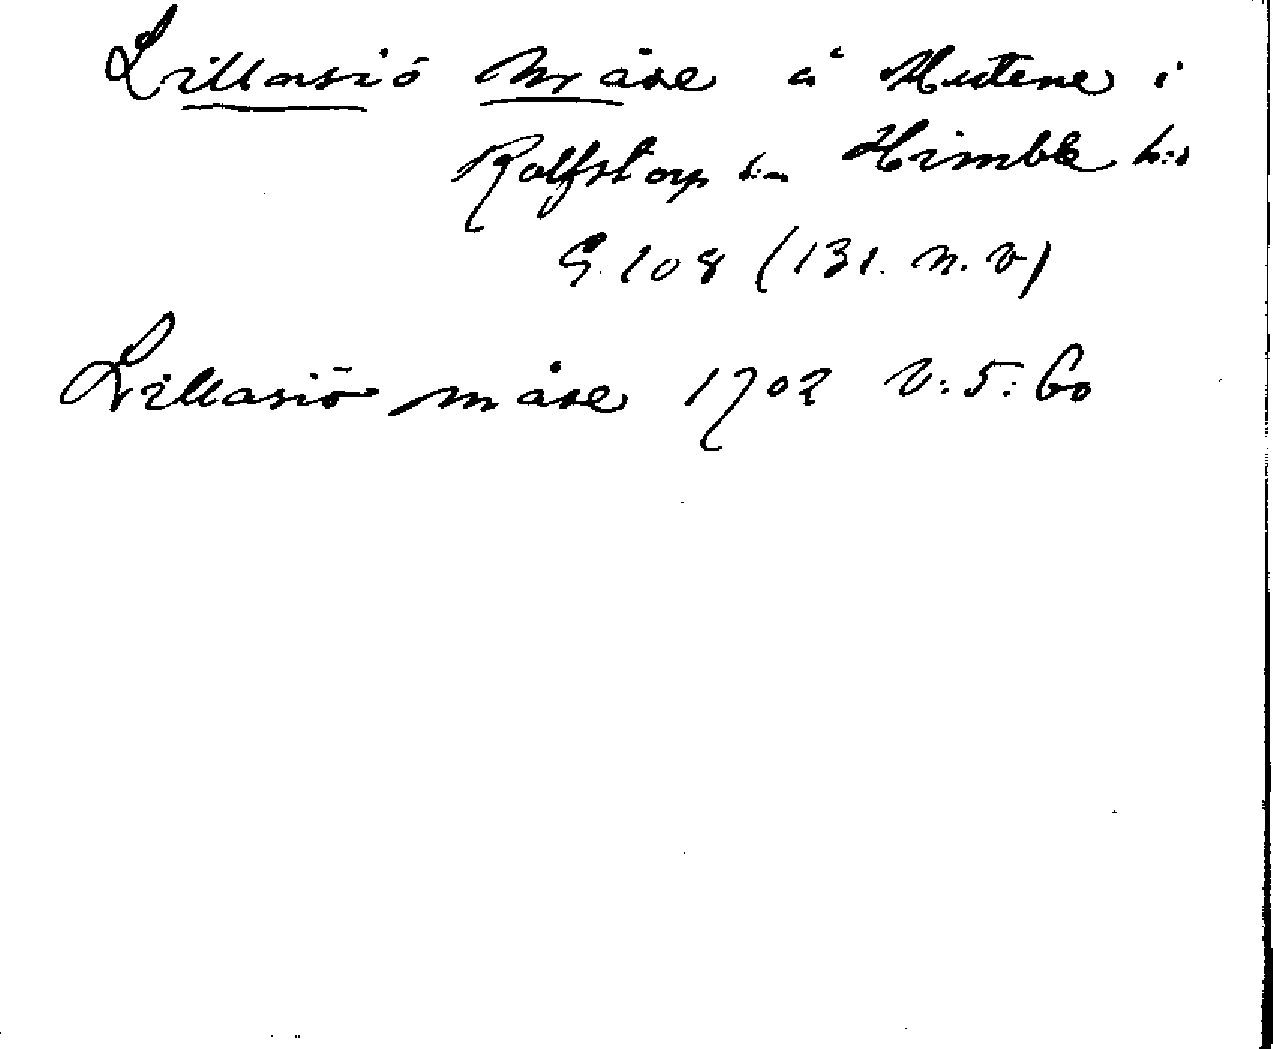 Lillasiö Måse å Hutene i
Rolfstorp s:n Himble h:d
G. 108 (131. n. v)
Lillasiö måse 1702 V:5:60